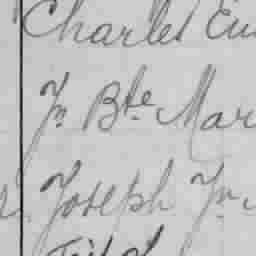 Charles Eu
Jn Bte Mar
Joseph Jn